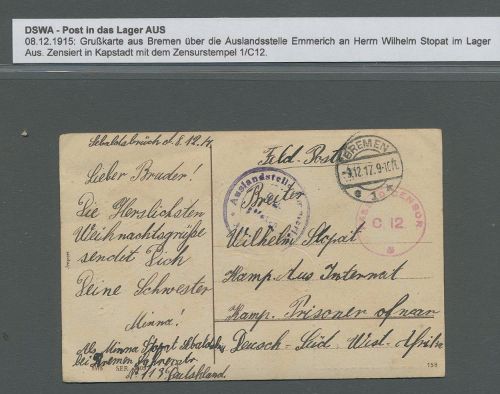 DSWA - Post in das Lager AUS
08.12.1915: Grußkarte aus Bremen über die Auslandsstelle Emmerich an Herrn Wilhelm Stopat im Lager
Aus. Zensiert in Kapstadt mit dem Zensurstempel 1/C12.
Sebaldsbrück d. 8.12.17.
Lieber Bruder!
Die Herzlichsten
Weihnachtsgrüße
sendet Dich
Deine Schwester
Minna!
Minna Stopat Sebaldsbr.
bei Bremen
No 113 Deutschland.
Feld-Post
BREMEN
-9.12.17.9-10
* 1 *
Auslandsstelle
CENSOR
C 12
Wilhelm Stopat
Kamp Aus Internat
Kamp. Prisoner of war
Deusch-Süd-West-Afrika
SER.
158